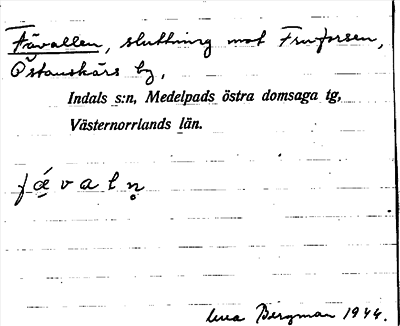 Fävallen, sluttning mot Fruforsen,
Östanskärs by,
Indals s:n, Medelpads östra domsaga tg,
Västernorrlands län.
fǽvaln̥
Bergman 1944.